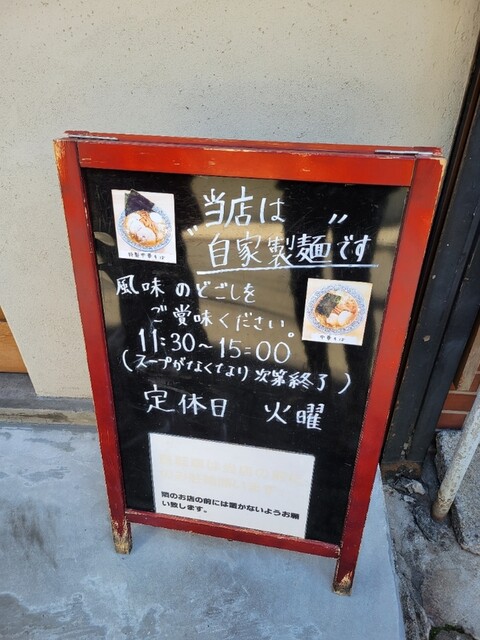 当店は
"自家製麺"です
風味 のどごしを
ご賞味ください。
11:30～15:00
(スープがなくなり次第終了)
定休日 火曜
特製中華そば
中華そば
隣のお店の前には置かないようお願
い致します。